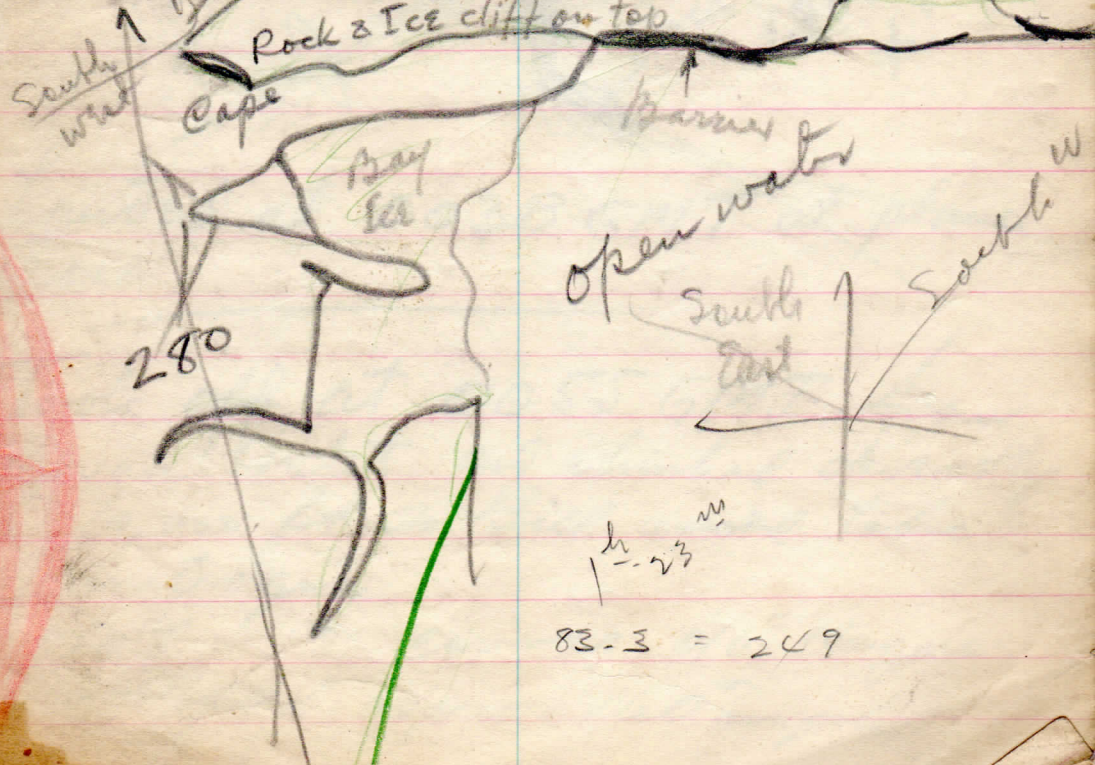 Rock & Ice cliff on top
South
West
Cape
Barrier
Bay
Ice
open water
South W
South
East
280
1h-23m
83-3 = 249